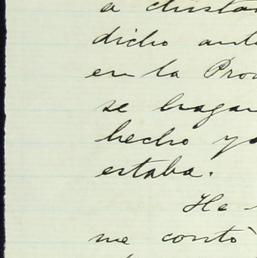 a distan
dicho ante
en la Prov
se hagan
hecho yo
estaba.
He
me contó